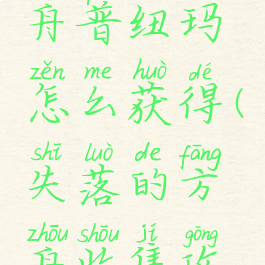 舟普纽玛
zěn me huò dé
怎么获得(
shī luò de fāng
失落的方
zhōu shōu jí gōng
舟收集攻